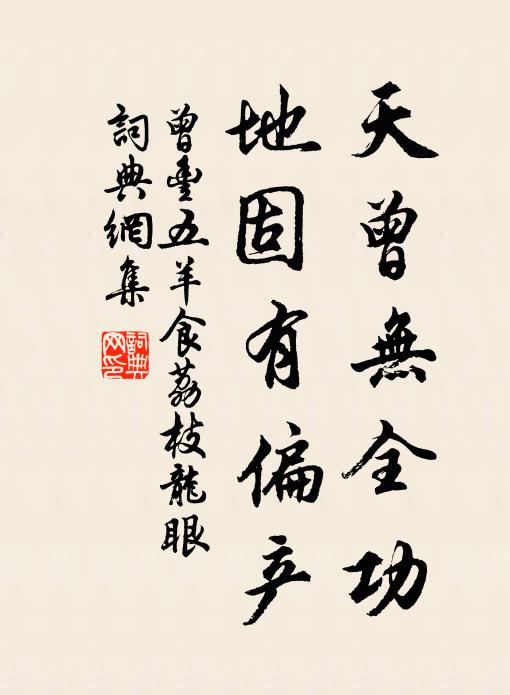 天曾無全功
地固有偏产
曾豐五羊食荔枝龍眼
詞典網集
詞典网印